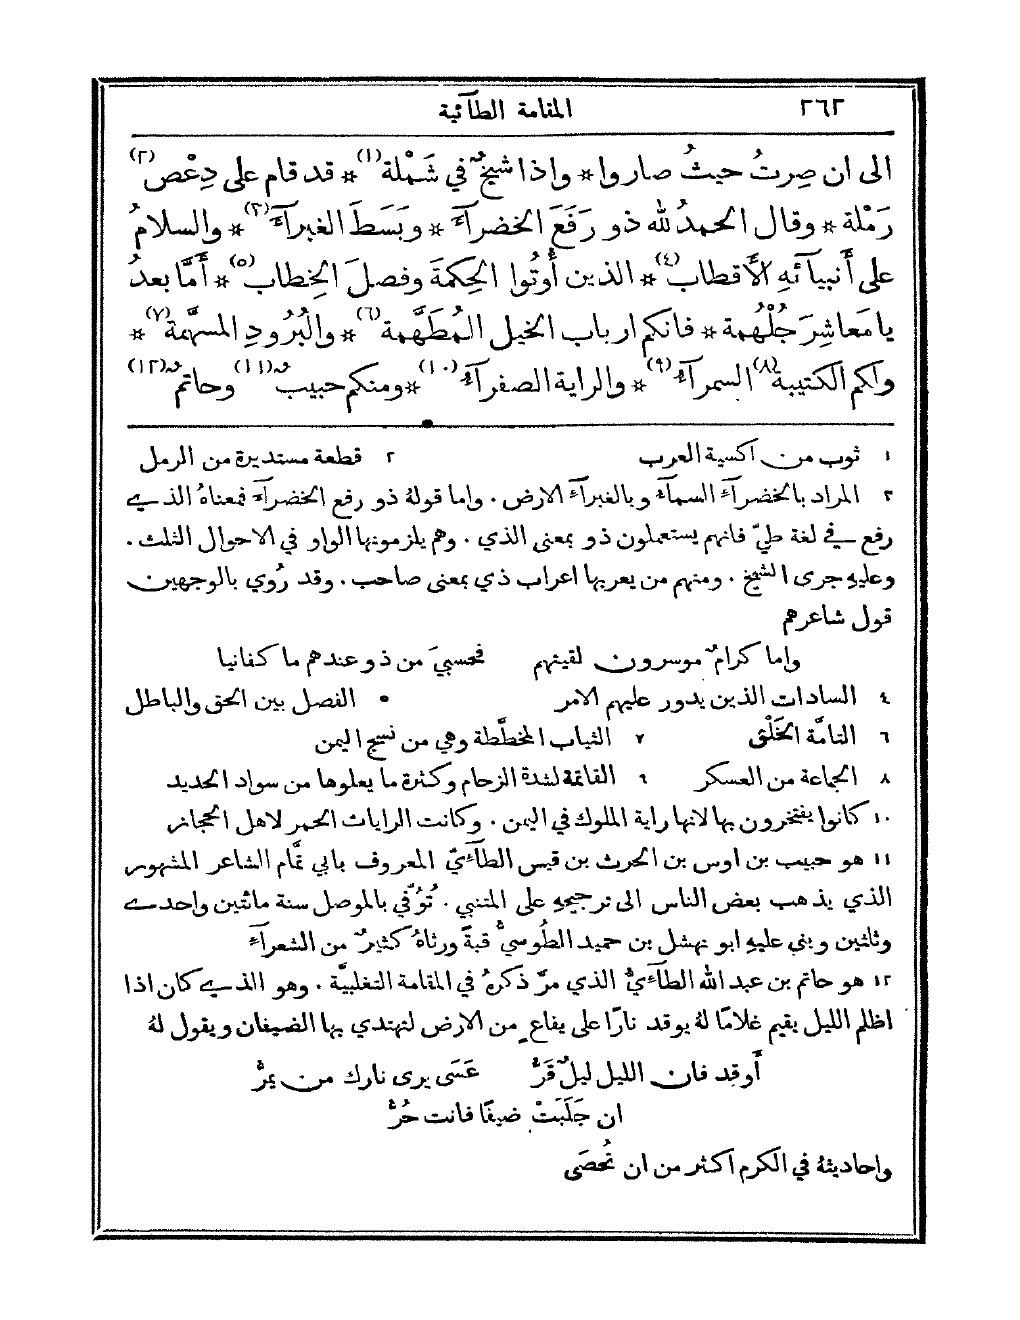 ٢٦٢ المقامة الطآئية
الى ان صِرتُ حيثُ صاروا * واذا شيخٌ في شَمْلة(١) * قد قام على دِعْص(٢)
رَمْلة * وقال الحمدُ لله ذو رَفَعَ الخضرآءَ * وبَسَطَ الغبرآءَ(٣) * والسلامُ
على أَنبيآئهِ الأَقطاب(٤) * الذين أُوتُوا الحِكمةَ وفصلَ الخِطاب(٥) * أَمَّا بعدُ
يا مَعاشِرَ جُلْهُمة * فانكم ارباب الخيل المُطَهَّمة(٦) * والبُرُودِ المسهَّمة(٧) *
ولكم الكتيبة(٨) السمرآءُ(٩) * والراية الصفرآءُ(١٠) * ومنكم حبيبٌ(١١) وحاتمٌ(١٢)
١ ثوب من اكسية العرب ٢ قطعة مستديرة من الرمل
٣ المراد بالخضرآءِ السمآءُ وبالغبرآءِ الارض. واما قولهُ ذو رفع الخضرآءَ فمعناهُ الذي
رفع في لغة طيّ فانهم يستعملون ذو بمعنى الذي. وهم يلزمونها الواو في الاحوال الثلث.
وعليهِ جرى الشيخ. ومنهم من يعربها اعراب ذي بمعنى صاحب. وقد رُوي بالوجهين
قول شاعرهم
واما كرامٌ موسرون لقيتهم فحسبيَ من ذو عندهم ما كفانيا
٤ السادات الذين يدور عليهم الامر ٥ الفصل بين الحق والباطل
٦ التامَّة الخَلْق ٧ الثياب المخطَّطة وهي من نسج اليمن
٨ الجماعة من العسكر ٩ القاتمة لشدة الزحام وكثرة ما يعلوها من سواد الحديد
١٠ كانوا يفتخرون بها لانها راية الملوك في اليمن. وكانت الرايات الحمر لاهل الحجاز
١١ هو حبيب بن اوس بن الحرث بن قيس الطآءيّ المعروف بابي تمَّام الشاعر المشهور
الذي يذهب بعض الناس الى ترجيحهِ على المتنبي. تُوُفّي بالموصل سنة مائتين واحدى
وثلثين وبنى عليهِ ابو نهشل بن حميد الطُوسيُّ قبةً ورثاهُ كثيرٌ من الشعرآءِ
١٢ هو حاتم بن عبد الله الطآءيُّ الذي مرَّ ذكرهُ في المقامة التغلبيَّة. وهو الذي كان اذا
اظلم الليل يقيم غلامًا لهُ يوقد نارًا على يفاعٍ من الارض لتهتدي بها الضيفان ويقول لهُ
أَوقد فان الليل ليلٌ قَرُّ عَسَى يرى نارك من يمرُّ
ان جَلَبَتْ ضيفًا فانت حُرُّ
واحاديثهُ في الكرم اكثر من ان تُحصَى